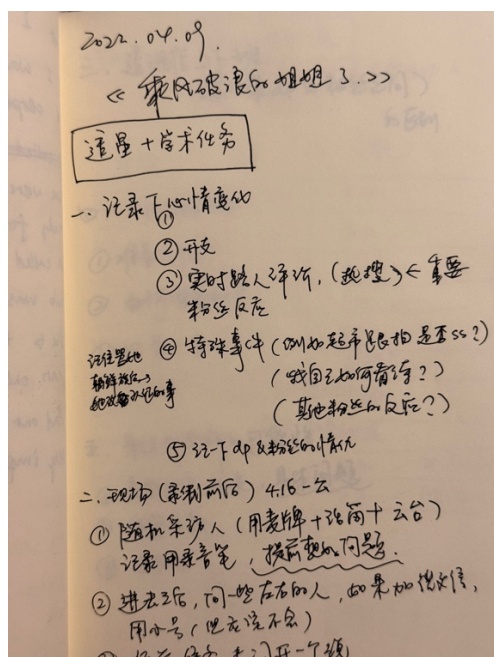 2022.04.09.
《乘风破浪的姐姐3.》
追星+学术任务
一、记录下①心情变化
②开支
③实时路人评价,(热搜)←重要
粉丝反应
④特殊事件(例如超市跟拍是否ss?)
(我自己如何看待?)
(其他粉丝的反应?)
⑤记一下dp&粉丝的情况
二、现场(录制前后)4.16一公
①随机采访人(用麦牌+话筒+云台)
记录用录音笔,提前想好问题.
②进去之后,问一些左右的人,如果加微信,
用小号(但应该不会)